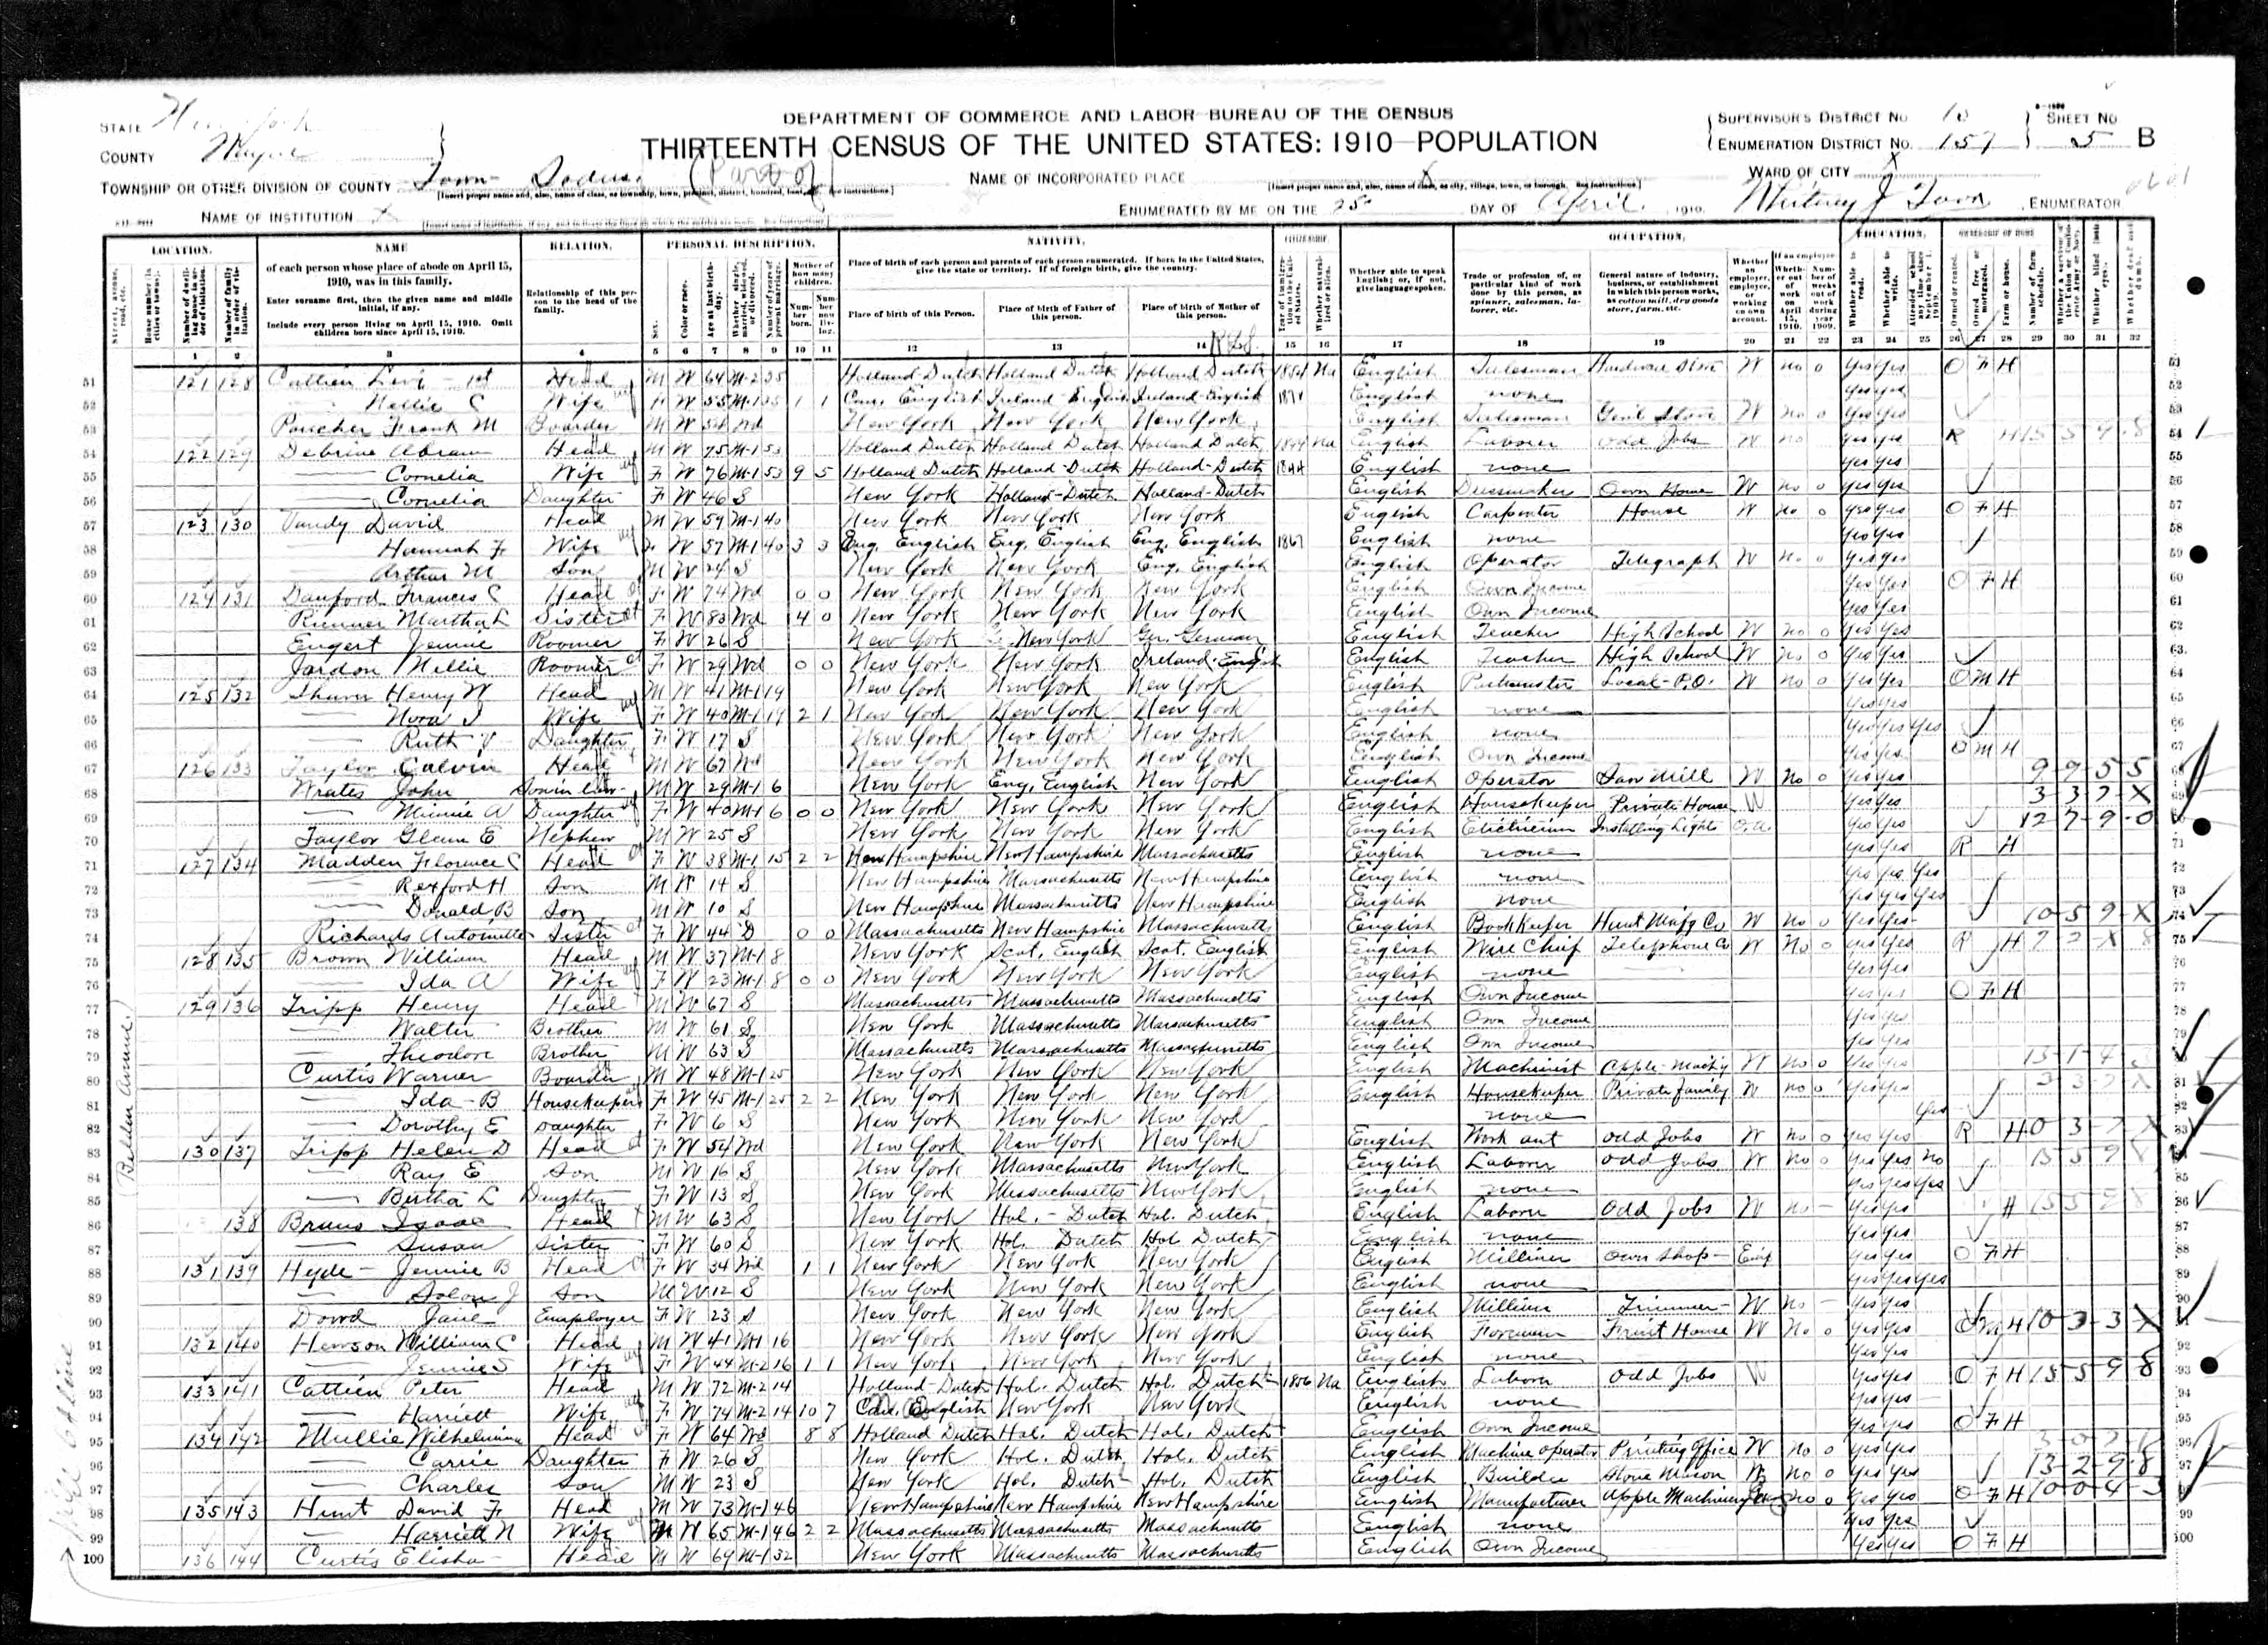 DEPARTMENT OF COMMERCE AND LABOR—BUREAU OF THE CENSUS
THIRTEENTH CENSUS OF THE UNITED STATES: 1910—POPULATION
STATE New York
COUNTY Wayne
TOWNSHIP OR OTHER DIVISION OF COUNTY Town Sodus (Part of)
NAME OF INSTITUTION X
NAME OF INCORPORATED PLACE X
ENUMERATED BY ME ON THE 25 DAY OF April, 1910. Whitney J ENUMERATOR
SUPERVISOR'S DISTRICT No. 10
ENUMERATION DISTRICT No. 157
SHEET No. 5 B
WARD OF CITY X
LOCATION. NAME RELATION. PERSONAL DESCRIPTION. NATIVITY. CITIZENSHIP. OCCUPATION. EDUCATION. OWNERSHIP OF HOME
of each person whose place of abode on April 15, 1910, was in this family.
Enter surname first, then the given name and middle initial, if any.
Include every person living on April 15, 1910. Omit children born since April 15, 1910.
Relationship of this person to the head of the family.
Place of birth of each person and parents of each person enumerated. If born in the United States, give the state or territory. If of foreign birth, give the country.
Place of birth of this Person. Place of birth of Father of this person. Place of birth of Mother of this person.
Whether able to speak English; or, if not, give language spoken.
Trade or profession of, or particular kind of work done by this person, as spinner, salesman, laborer, etc.
General nature of industry, business, or establishment in which this person works, as cotton mill, dry goods store, farm, etc.
Belden Avenue
51 121 128 Cattieu Levi Head M W 64 M-2 35 Holland Dutch Holland Dutch Holland Dutch 1854 Na English Salesman Hardware Store W no 0 Yes Yes O F H
52 Nellie C Wife F W 55 M-1 35 1 1 Can. English Ireland English Ireland English English none Yes Yes
53 Frank M Boarder M W Wd New York New York New York English Salesman Genl Store W no 0 Yes Yes
54 122 129 Debrine Abram Head M W 75 M-1 53 Holland Dutch Holland Dutch Holland Dutch Na English Laborer Odd Jobs W no Yes Yes R H
55 Cornelia Wife F W 76 M-1 53 9 5 Holland Dutch Holland-Dutch Holland-Dutch 1844 English none Yes Yes
56 Cornelia Daughter F W 46 S New York Holland-Dutch Holland-Dutch English Dressmaker Own Home W no 0 Yes Yes
57 123 130 David Head M W 59 M-1 40 New York New York New York English Carpenter House W no 0 Yes Yes O F H
58 Hannah F Wife F W 57 M-1 40 3 3 Eng. English Eng. English Eng. English 1867 English none Yes Yes
59 Arthur M Son M W 24 S New York New York Eng. English English Operator Telegraph W no 0 Yes Yes
60 124 131 Danford Frances C Head F W 74 Wd 0 0 New York New York New York English Own Income Yes Yes O F H
61 Martha L Sister F W 83 Wd 4 0 New York New York New York English Own Income Yes Yes
62 Engert Jennie Roomer F W 26 S New York New York Ger. German English Teacher High School W no 0 Yes Yes
63 Jardon Nellie Roomer F W 29 Wd 0 0 New York New York Ireland-English English Teacher High School W no 0 Yes Yes
64 125 132 Shaver Henry W Head M W 41 M-1 19 New York New York New York English Postmaster Local-P.O. W no 0 Yes Yes O M H
65 Nora I Wife F W 40 M-1 19 2 1 New York New York New York English none Yes Yes
66 Ruth V Daughter F W 17 S New York New York New York English none Yes Yes Yes
67 126 133 Taylor Calvin Head M W 67 Wd New York New York New York English Own Income Yes Yes O M H
68 Wrates John Son in law M W 29 M-1 6 New York Eng. English New York English Operator Saw Mill W No 0 Yes Yes 9 9 5 5
69 Minnie A Daughter F W 40 M-1 6 0 0 New York New York New York English Housekeeper Private House W Yes Yes 3 3 7 X
70 Taylor Glenn E Nephew M W 25 S New York New York New York English Electrician Installing Lights O.A. Yes Yes 12 7 9 0
71 127 134 Madden Florence C Head F W 38 M-1 15 2 2 New Hampshire New Hampshire Massachusetts English none Yes Yes R H
72 Rexford H Son M W 14 S New Hampshire Massachusetts New Hampshire English none Yes Yes Yes
73 Donald B Son M W 10 S New Hampshire Massachusetts New Hampshire English none Yes Yes Yes
74 Richards Antoinette Sister F W 44 D 0 0 Massachusetts New Hampshire Massachusetts English Bookkeeper Hunt Manfg Co W No 0 Yes Yes 10 5 9 X
75 128 135 Brown William Head M W 37 M-1 8 New York Scot. English Scot. English English Wire Chief Telephone Co W No 0 Yes Yes R H 7 2 X 8
76 Ida A Wife F W 23 M-1 8 0 0 New York New York New York English none Yes Yes
77 129 136 Tripp Henry Head M W 67 S Massachusetts Massachusetts Massachusetts English Own Income Yes Yes O F H
78 Walter Brother M W 61 S New York Massachusetts Massachusetts English Own Income Yes Yes
79 Theodore Brother M W 63 S Massachusetts Massachusetts Massachusetts English Own Income Yes Yes
80 Curtis Warner Boarder M W 48 M-1 25 New York New York New York English Machinist Apple-Machy W No 0 Yes Yes
81 Ida-B Housekeeper F W 45 M-1 25 2 2 New York New York New York English Housekeeper Private Family W no 0 Yes Yes
82 Dorothy E Daughter F W 6 S New York New York New York none Yes
83 130 137 Tripp Helen D Head F W 54 Wd New York New York New York English Work out Odd Jobs W No 0 Yes Yes R H
84 Ray E Son M W 16 S New York Massachusetts New York English Laborer Odd Jobs W No 0 Yes Yes No
85 Bertha L Daughter F W 13 S New York Massachusetts New York English none Yes Yes Yes
86 138 Isaac Head M W 63 S New York Hol.-Dutch Hol. Dutch English Laborer Odd Jobs W no Yes Yes H
87 Susan Sister F W 60 S New York Hol. Dutch Hol Dutch English none Yes Yes
88 131 139 Hyde Jennie B Head F W 34 Wd 1 1 New York New York New York English Milliner Own Shop Emp Yes Yes O F H
89 Solon J Son M W 12 S New York New York New York English none Yes Yes Yes
90 Dowd Jane Employee F W 23 S New York New York New York English Milliner Trimmer W No Yes Yes
91 132 140 Hewson William C Head M W 41 M-1 16 New York New York New York English Foreman Fruit House W No 0 Yes Yes O M H 10 3 3 X
92 Jennie S Wife F W 44 M-2 16 1 1 New York New York New York English none Yes Yes
93 133 141 Cattieu Peter Head M W 72 M-2 14 Holland-Dutch Hol. Dutch Hol. Dutch 1856 Na English Laborer Odd Jobs W Yes Yes O F H 15 5 9 8
94 Harriett Wife F W 74 M-2 14 10 7 Can. English New York New York English none Yes Yes
95 134 142 Mullie Wilhelmina Head F W 64 Wd 8 8 Holland Dutch Hol. Dutch Hol. Dutch English Own Income Yes Yes O F H
96 Carrie Daughter F W 26 S New York Hol. Dutch Hol. Dutch English Machine Operator Printing Office W No 0 Yes Yes
97 Charles Son M W 23 S New York Hol. Dutch Hol. Dutch English Builder Stone Mason W No 0 Yes Yes 13 2 9 8
98 135 143 Hunt David F Head M W 73 M-1 46 New Hampshire New Hampshire New Hampshire English Manufacturer Apple Machinery no 0 Yes Yes O F H
99 Harriett N Wife F W 65 M-1 46 2 2 Massachusetts Massachusetts Massachusetts English none Yes Yes
100 136 144 Curtis Elisha Head M W 64 M-1 32 New York Massachusetts Massachusetts English Own Income Yes Yes O F H